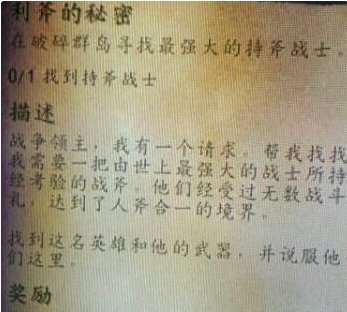 利斧的秘密
在破碎群岛寻找最强大的持斧战士。
0/1 找到持斧战士
描述
战争领主，我有一个请求。帮我找找
我需要一把由世上最强大的战士所持
经考验的战斧。他们经受过无数战斗
礼，达到了人斧合一的境界。
找到这名英雄和他的武器，并说服他
们这里。
奖励